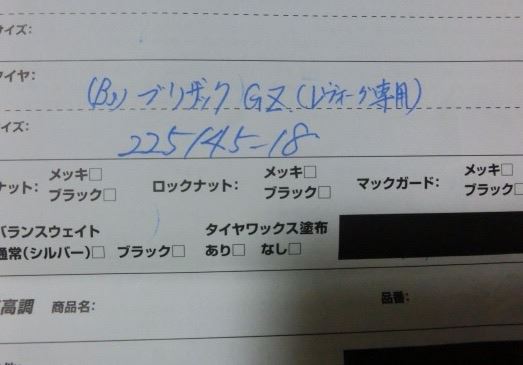 サイズ:
イヤ: (BS) ブリザック GZ (レヴォーグ専用)
イズ: 225/45-18
ナット: メッキ□ ブラック□ ロックナット: メッキ□ ブラック□ マックガード: メッキ□ ブラック□
バランスウェイト タイヤワックス塗布
通常(シルバー)□ ブラック□ あり□ なし□
高調 商品名: 品番: